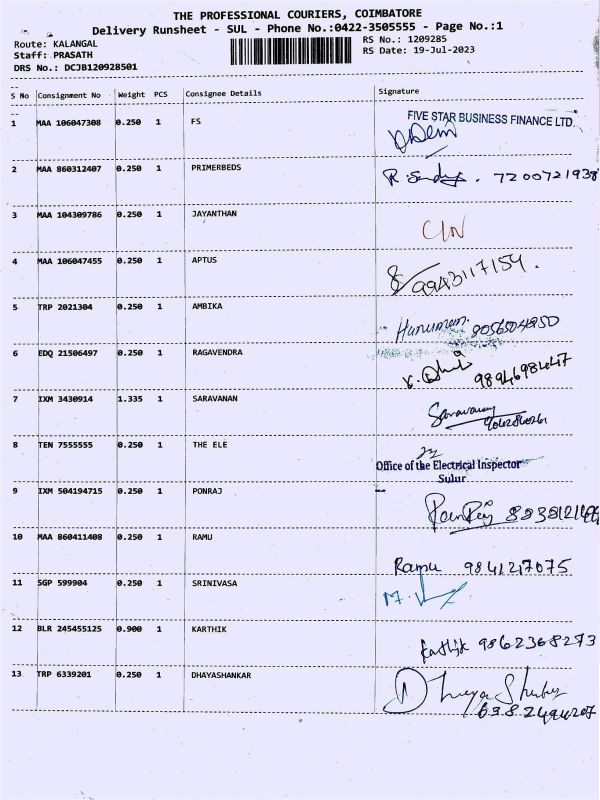 THE PROFESSIONAL COURIERS, COIMBATORE
Delivery Runsheet - SUL - Phone No.:0422-3505555 - Page No.:1
Route: KALANGAL
RS No.: 1209285
Staff: PRASATH
RS Date: 19-Jul-2023
DRS No.: DCJB120928501
S No Consignment No Weight PCS Consignee Details Signature
1 MAA 106047308 0.250 1 FS FIVE STAR BUSINESS FINANCE LTD.
2 MAA 860312407 0.250 1 PRIMERBEDS 7200721938
3 MAA 104309786 0.250 1 JAYANTHAN
4 MAA 106047455 0.250 1 APTUS 9943117154.
5 TRP 2021304 0.250 1 AMBIKA Hanuman.
6 EDQ 21506497 0.250 1 RAGAVENDRA
7 IXM 3430914 1.335 1 SARAVANAN Saravanan
8 TEN 7555555 0.250 1 THE ELE
Office of the Electrical Inspector
Sulur
9 IXM 504194715 0.250 1 PONRAJ
10 MAA 860411408 0.250 1 RAMU Ramu 9841217075
11 SGP 599904 0.250 1 SRINIVASA
12 BLR 245455125 0.900 1 KARTHIK Karthik 9862368273
13 TRP 6339201 0.250 1 DHAYASHANKAR